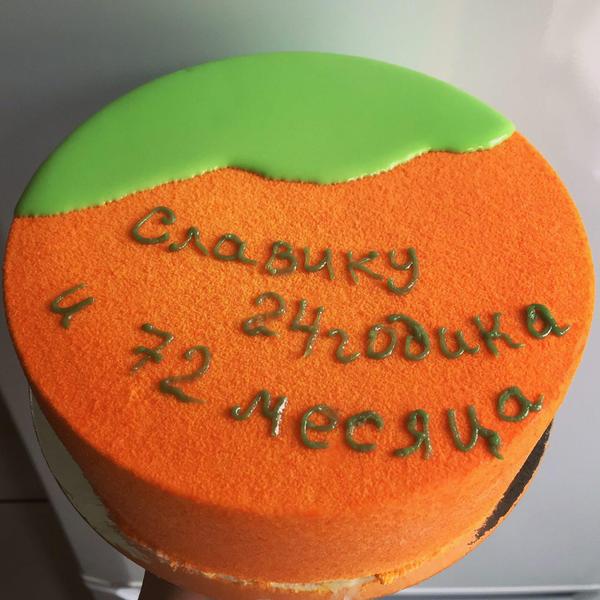 Славику
24 годика
и 72 месяца